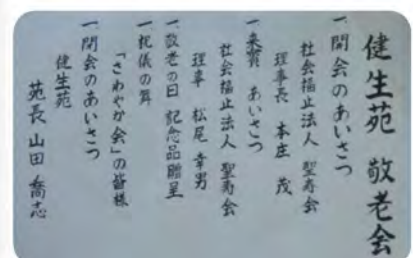 健生苑 敬老会
一 開会のあいさつ
社会福祉法人 聖寿会
理事長 本庄 茂
一 来賓 あいさつ
社会福祉法人 聖寿会
理事 松尾 幸男
一 敬老の日 記念品贈呈
一 祝儀の舞
「さわやか会」の皆様
一 閉会のあいさつ
健生苑
苑長 山田 喬志